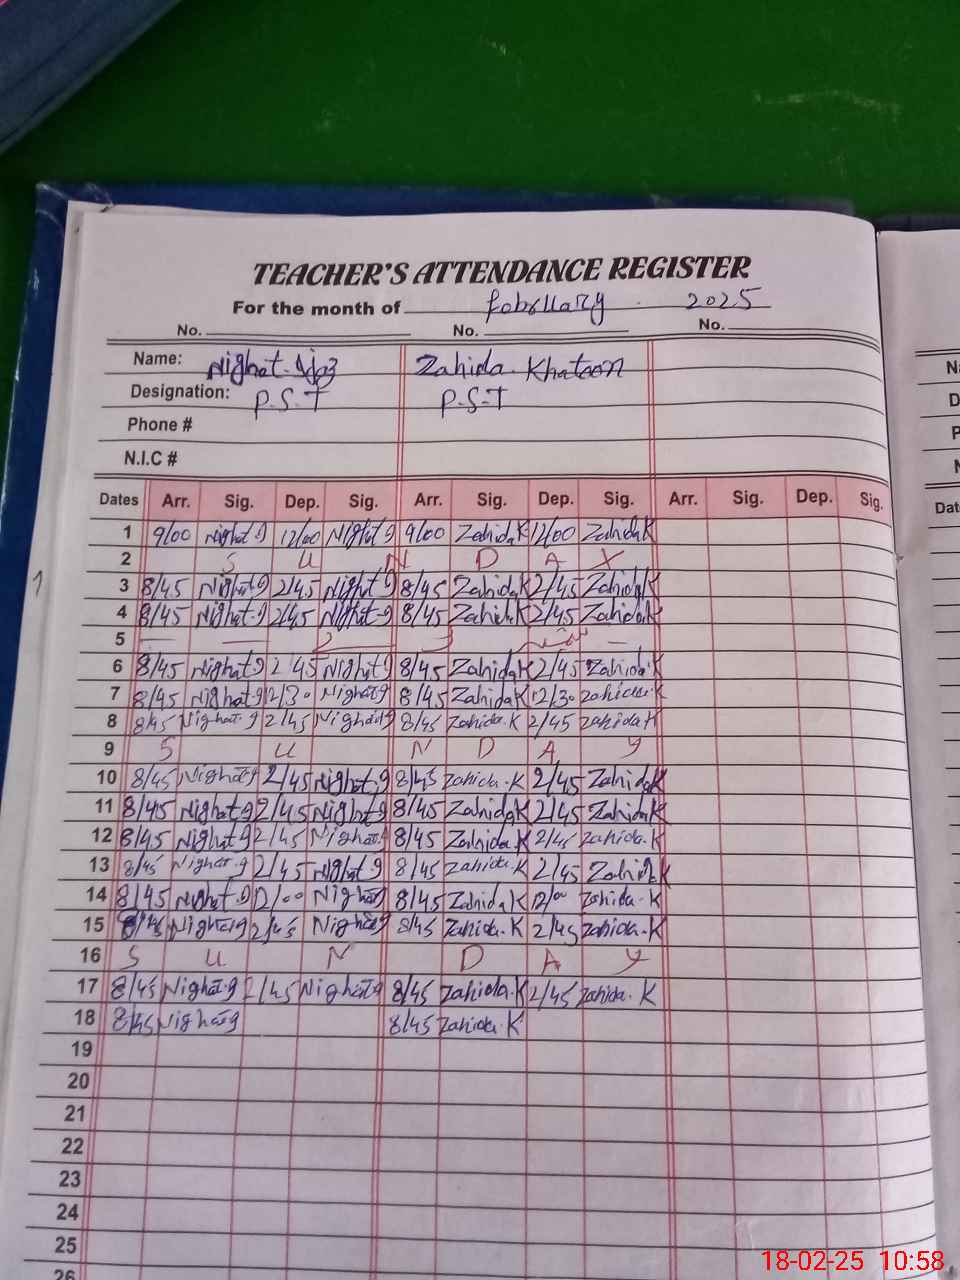 TEACHER'S ATTENDANCE REGISTER
For the month of February 2025
No. No. No.
Name: Nighat. Zahida. Khatoon
Designation: P.S.T P.S.T
Phone #
N.I.C #
Dates Arr. Sig. Dep. Sig. Arr. Sig. Dep. Sig. Arr. Sig. Dep. Sig.
1 9/00 Nighat.g 12/00 Nighat.g 9/00 Zahida.K 12/00 Zahida.K
2 S U N D A Y
3 8/45 Nighat.g 2/45 Nighat.g 8/45 Zahida.K 2/45 Zahida.K
4 8/45 Nighat.g 2/45 Nighat.g 8/45 Zahida.K 2/45 Zahida.K
5
6 8/45 Nighat.g 2/45 Nighat.g 8/45 Zahida.K 2/45 Zahida.K
7 8/45 Nighat.g 12/30 Nighat.g 8/45 Zahida.K 12/30 Zahida.K
8 8/45 Nighat.g 2/45 Nighat.g 8/45 Zahida.K 2/45 Zahida.K
9 S U N D A Y
10 8/45 Nighat.g 2/45 Nighat.g 8/45 Zahida.K 2/45 Zahida.K
11 8/45 Nighat.g 2/45 Nighat.g 8/45 Zahida.K 2/45 Zahida.K
12 8/45 Nighat.g 2/45 Nighat.g 8/45 Zahida.K 2/45 Zahida.K
13 8/45 Nighat.g 2/45 Nighat.g 8/45 Zahida.K 2/45 Zahida.K
14 8/45 Nighat.g 12/00 Nighat.g 8/45 Zahida.K 12/00 Zahida.K
15 8/45 Nighat.g 2/45 Nighat.g 8/45 Zahida.K 2/45 Zahida.K
16 S U N D A Y
17 8/45 Nighat.g 2/45 Nighat.g 8/45 Zahida.K 2/45 Zahida.K
18 8/45 Nighat.g 8/45 Zahida.K
19
20
21
22
23
24
25
26
18-02-25 10:58